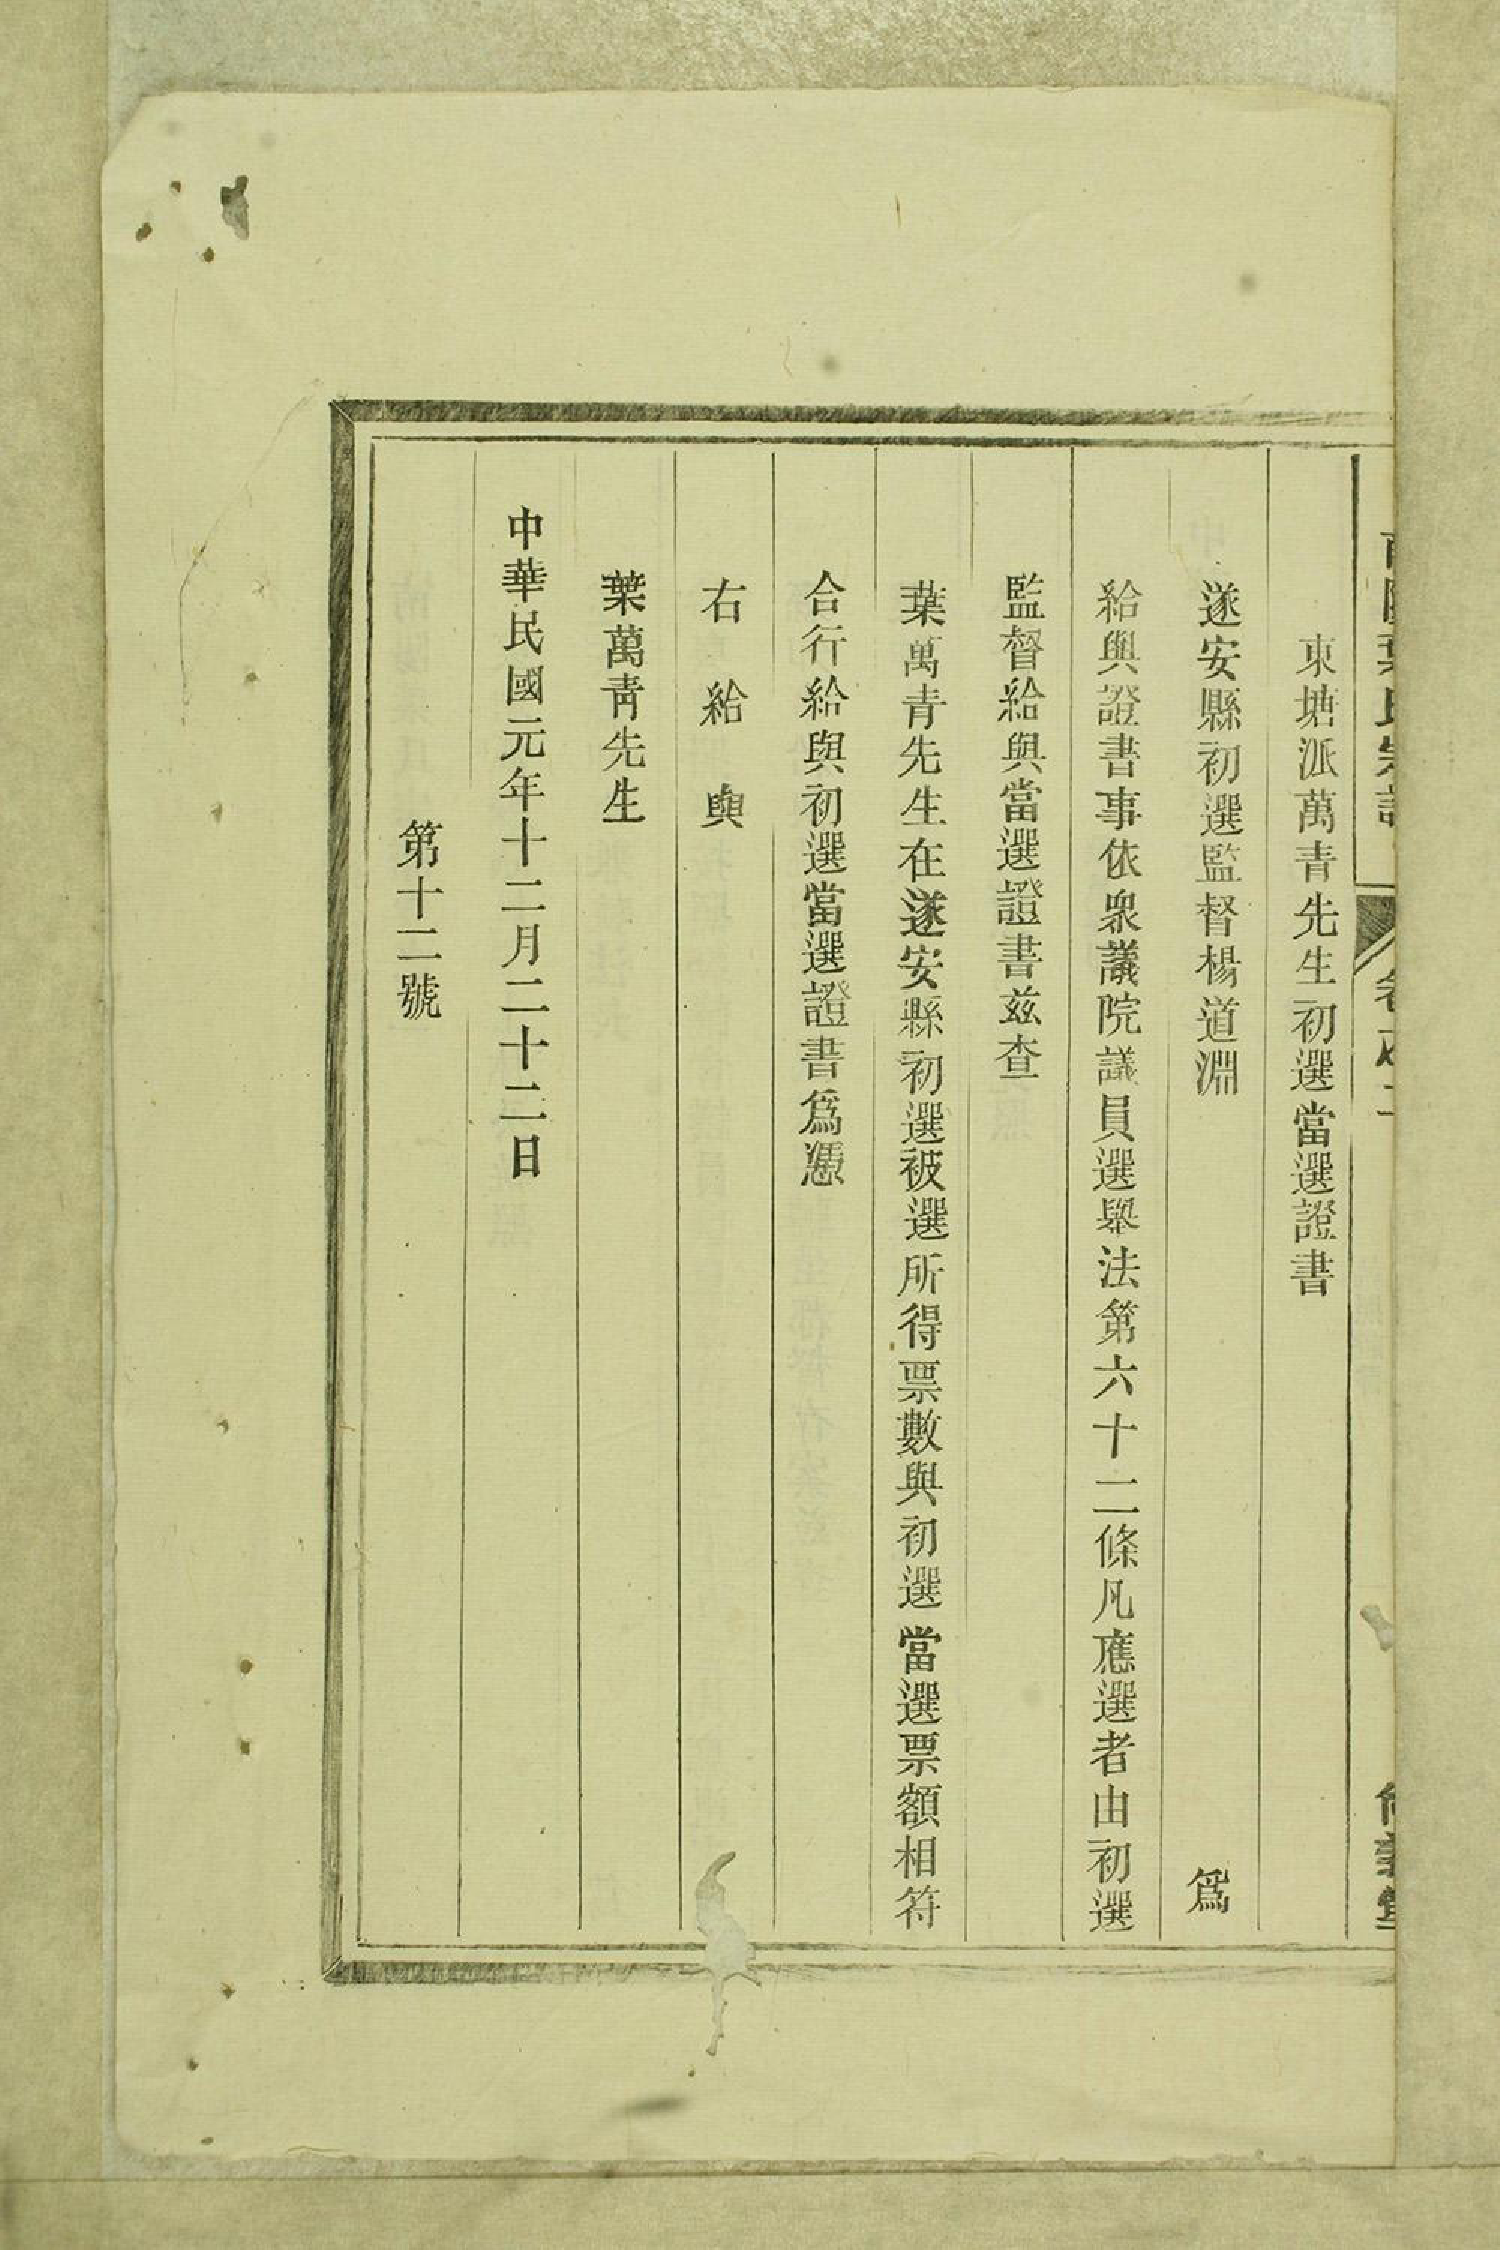 東塘派萬青先生初選當選證書
遂安縣初選監督楊道淵　爲
給與證書事依衆議院議員選舉法第六十二條凡應選者由初選
監督給與當選證書玆查
葉萬青先生在遂安縣初選被選所得票數與初選當選票額相符
合行給與初選當選證書爲憑
右給與
葉萬靑先生
中華民國元年十二月二十二日
第十二號